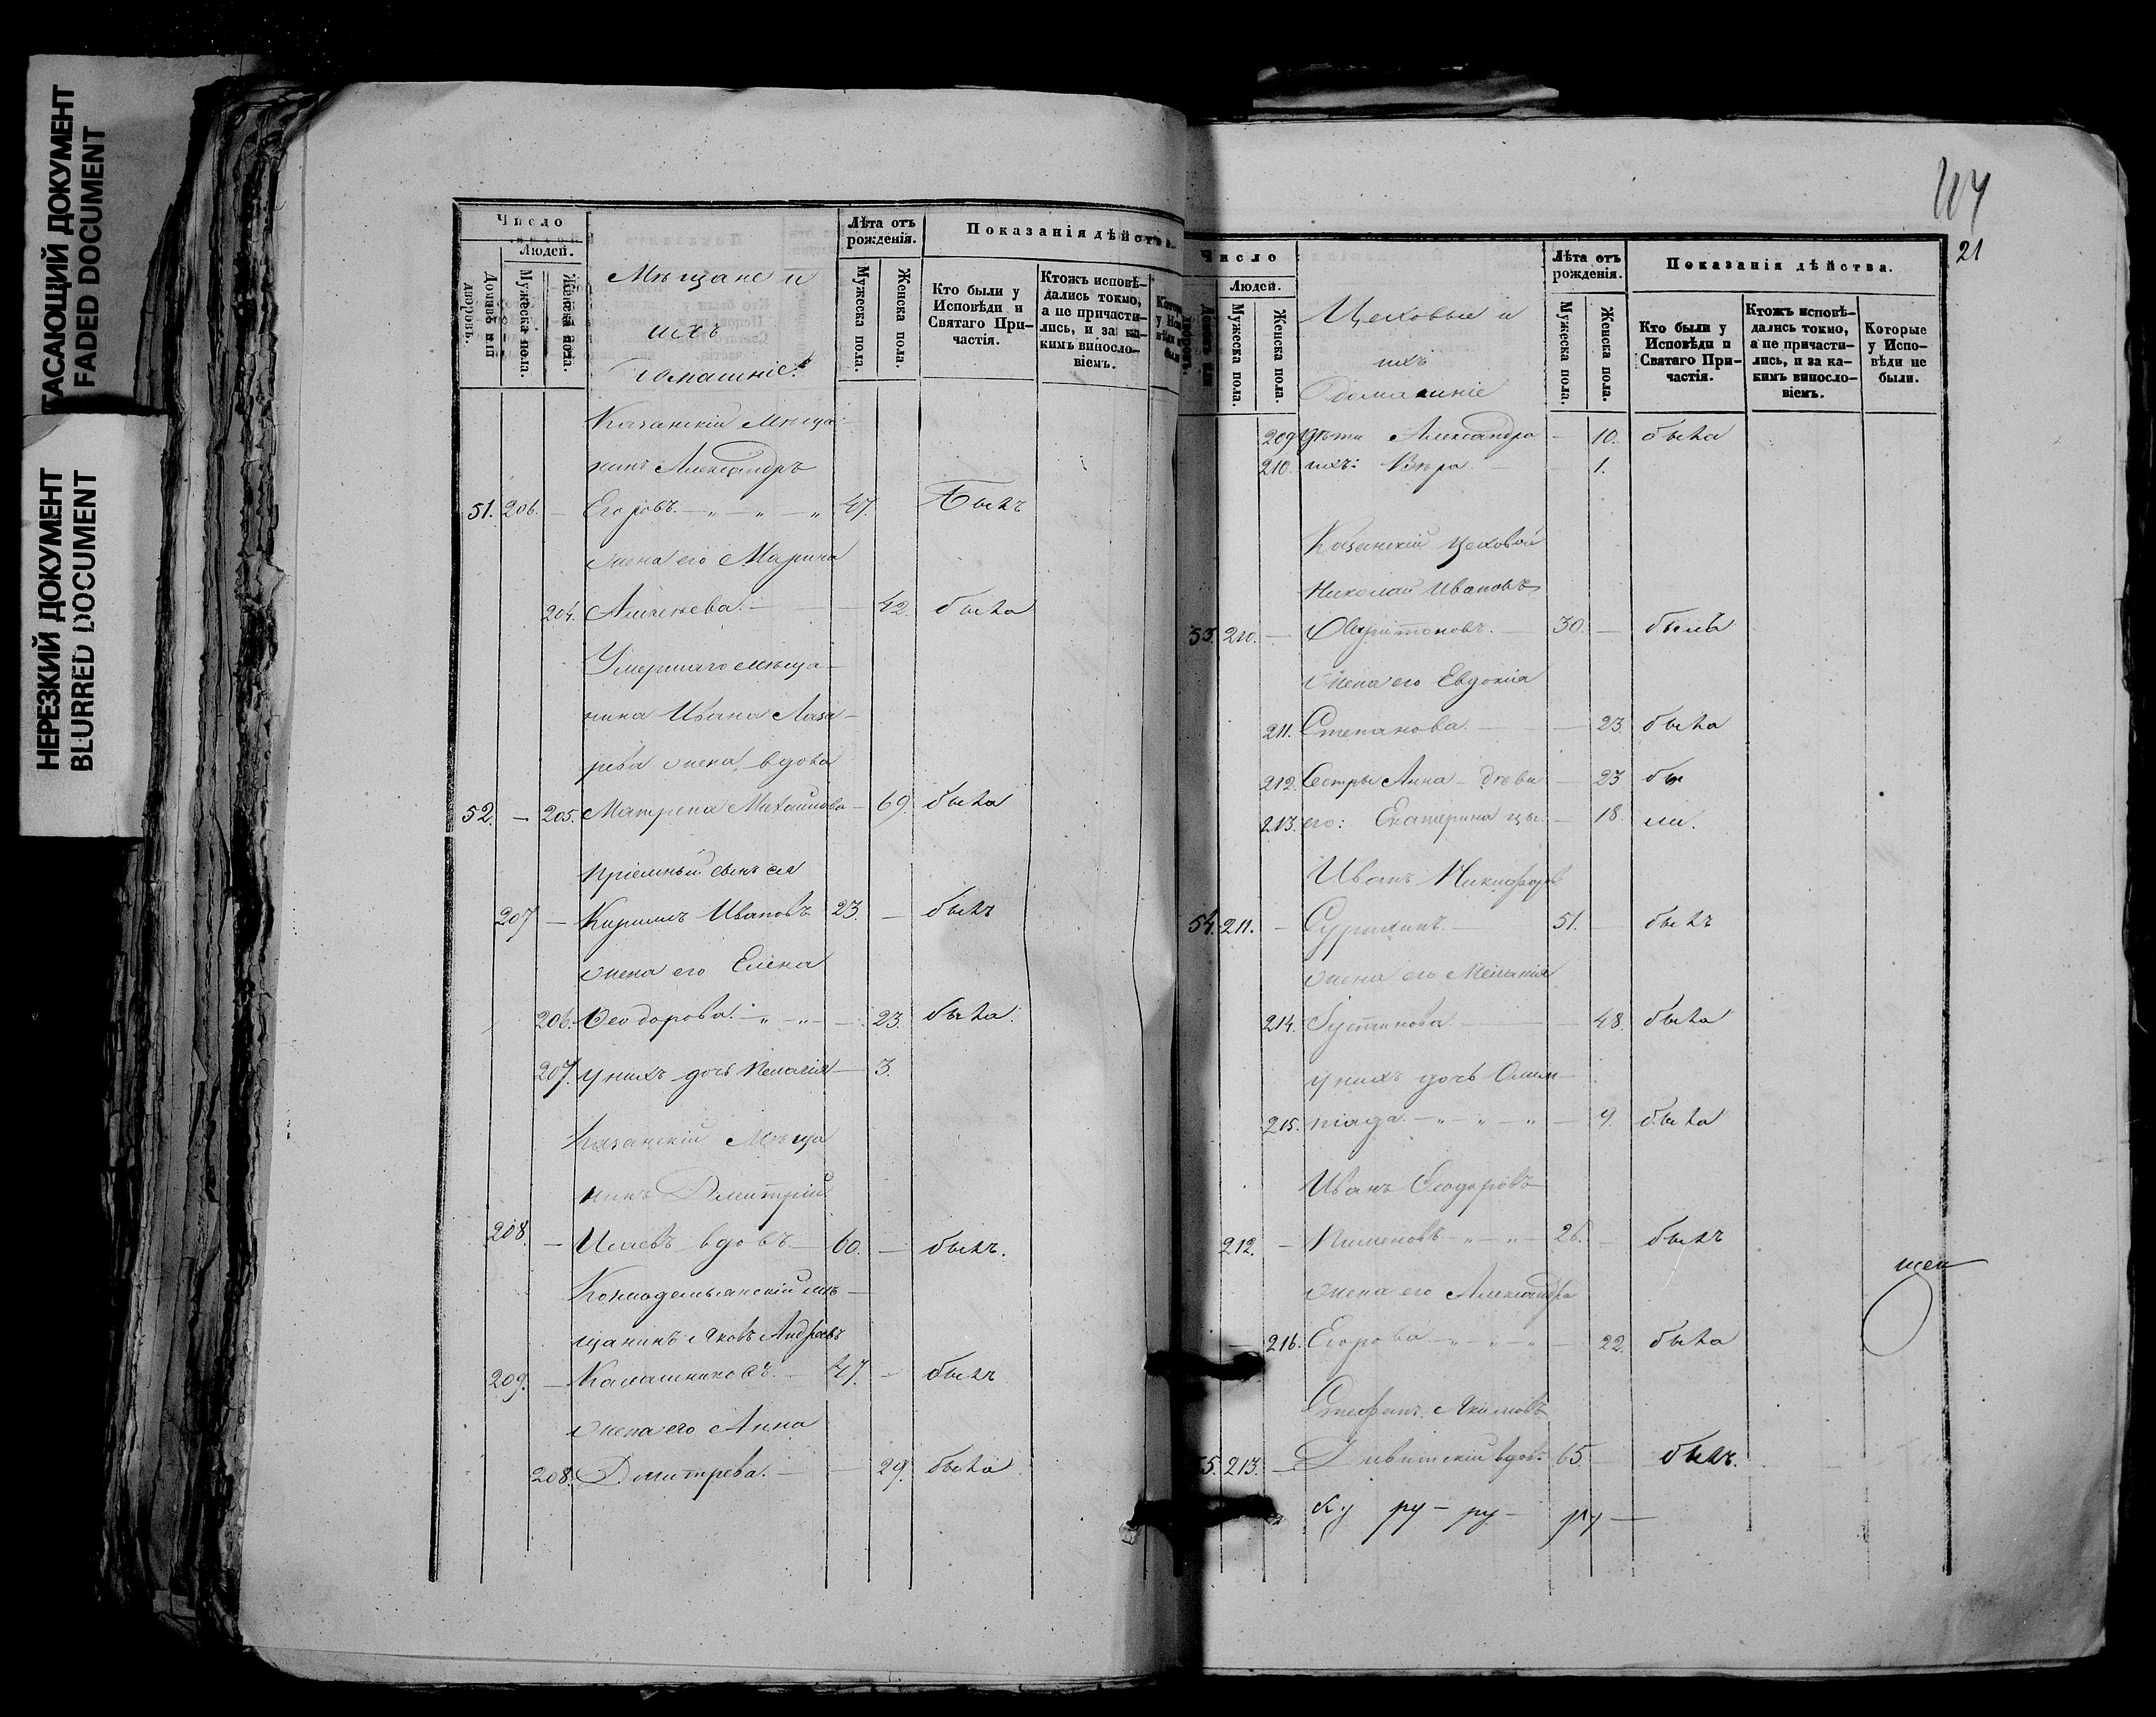 ТАСАЮЩИЙ ДОКУМЕНТ
FADED DOCUMENT
НЕРЕЗКИЙ ДОКУМЕНТ
BLURRED DOCUMENT
Число
Людей.
Домовъ или дворовъ.
Мужеска пола.
Женска пола.
Мѣщане и
ихъ
домашніе.
Лѣта отъ рожденія.
Мужеска пола.
Женска пола.
Показанія дѣйства.
Кто были у Исповѣди и Святаго Причастія.
Ктожъ исповѣдались токмо, а не причастились, и за какимъ винословіемъ.
Казанскій Мѣща
нинъ Александръ
51. 206. — Егоровъ. — „ — „ — „ 47. Былъ
жена его Марина
204. Алексѣева. — — 42. была
Умершаго мѣща-
нина Ивана Лаза-
рева жена, вдова
52. — 205. Матрена Михайлова — 69. была
Пріемный сынъ ея
207 — Кирилъ Ивановъ 23. — былъ
жена его Елена
206. Ѳеодорова. — „ — „ — 23. была.
207. у нихъ дочь Пелагія — 3.
Казанскій Мѣща
нинъ Дмитрій
208. — Ильевъ вдовъ. — 60. — былъ.
Козмодемьянскій мѣ-
щанинъ Яковъ Андреевъ
209. — Калашниковъ. — 47. — былъ
жена его Анна
208. Дмитрева. — — 29. была
21
Число
Людей.
Мужеска пола.
Женска пола.
Цеховые и
ихъ
Домашніе
Лѣта отъ рожденія.
Мужеска пола.
Женска пола.
Показанія дѣйства.
Кто были у Исповѣди и Святаго Причастія.
Ктожъ исповѣдались токмо, а не причастились, и за какимъ винословіемъ.
Которые у Исповѣди не были.
209 Дѣти Александра — 10. была
210. ихъ: Вѣра — — 1.
Казанскій цеховой
Николай Ивановъ
53. 210. — Харитоновъ. — 30. — былъ
жена его Евдокія
211. Степанова. — — 23. была
212. Сестры Анна — дѣви — 23 бы
213. его: Екатерина цы. — 18. ли.
Иванъ Никифоровъ
54. 211. — Сурилинъ. — 51. — былъ
жена его Меланія
214. Устинова — — 48. была
у нихъ дочь Олим-
215. піада. — „ — „ — „ — 9. была
Иванъ Ѳеодоровъ
212. — Пименовъ — „ — „ — 26. — былъ
жена его Александра
— 216. Егорова. — „ — „ — „ — 22. была
Стефанъ Якимовъ
55. 213. — вдов: 65. — былъ.
ру — ру — ру —